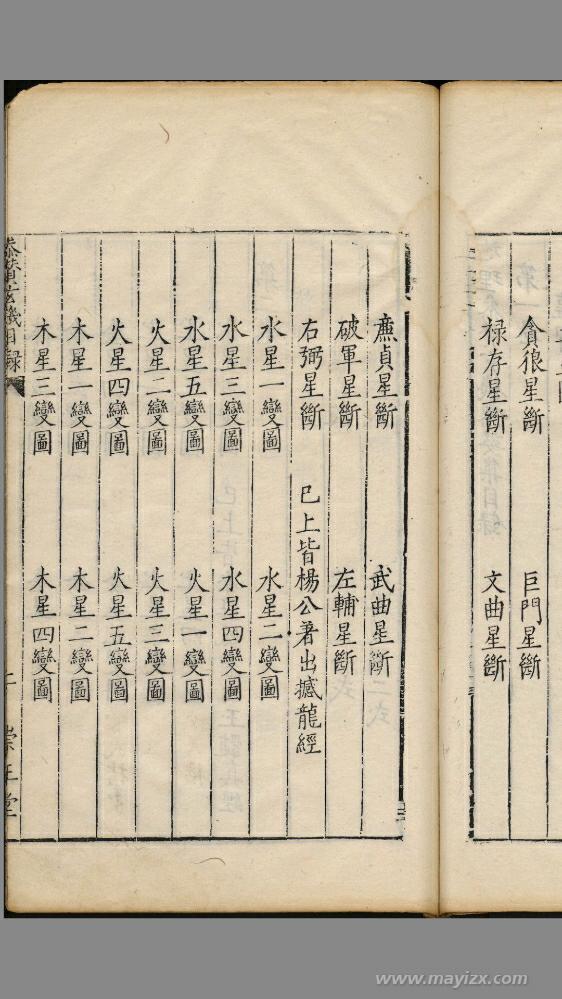 貪狼星斷　巨門星斷
禄存星斷　文曲星斷
廉貞星斷　武曲星斷
破軍星斷　左輔星斷
右弼星斷　已上皆楊公著出撼龍經
水星一變圖　水星二變圖
水星三變圖　水星四變圖
水星五變圖　火星一變圖
火星二變圖　火星三變圖
火星四變圖　火星五變圖
木星一變圖　木星二變圖
木星三變圖　木星四變圖
目録
堂
www.mayizx.com